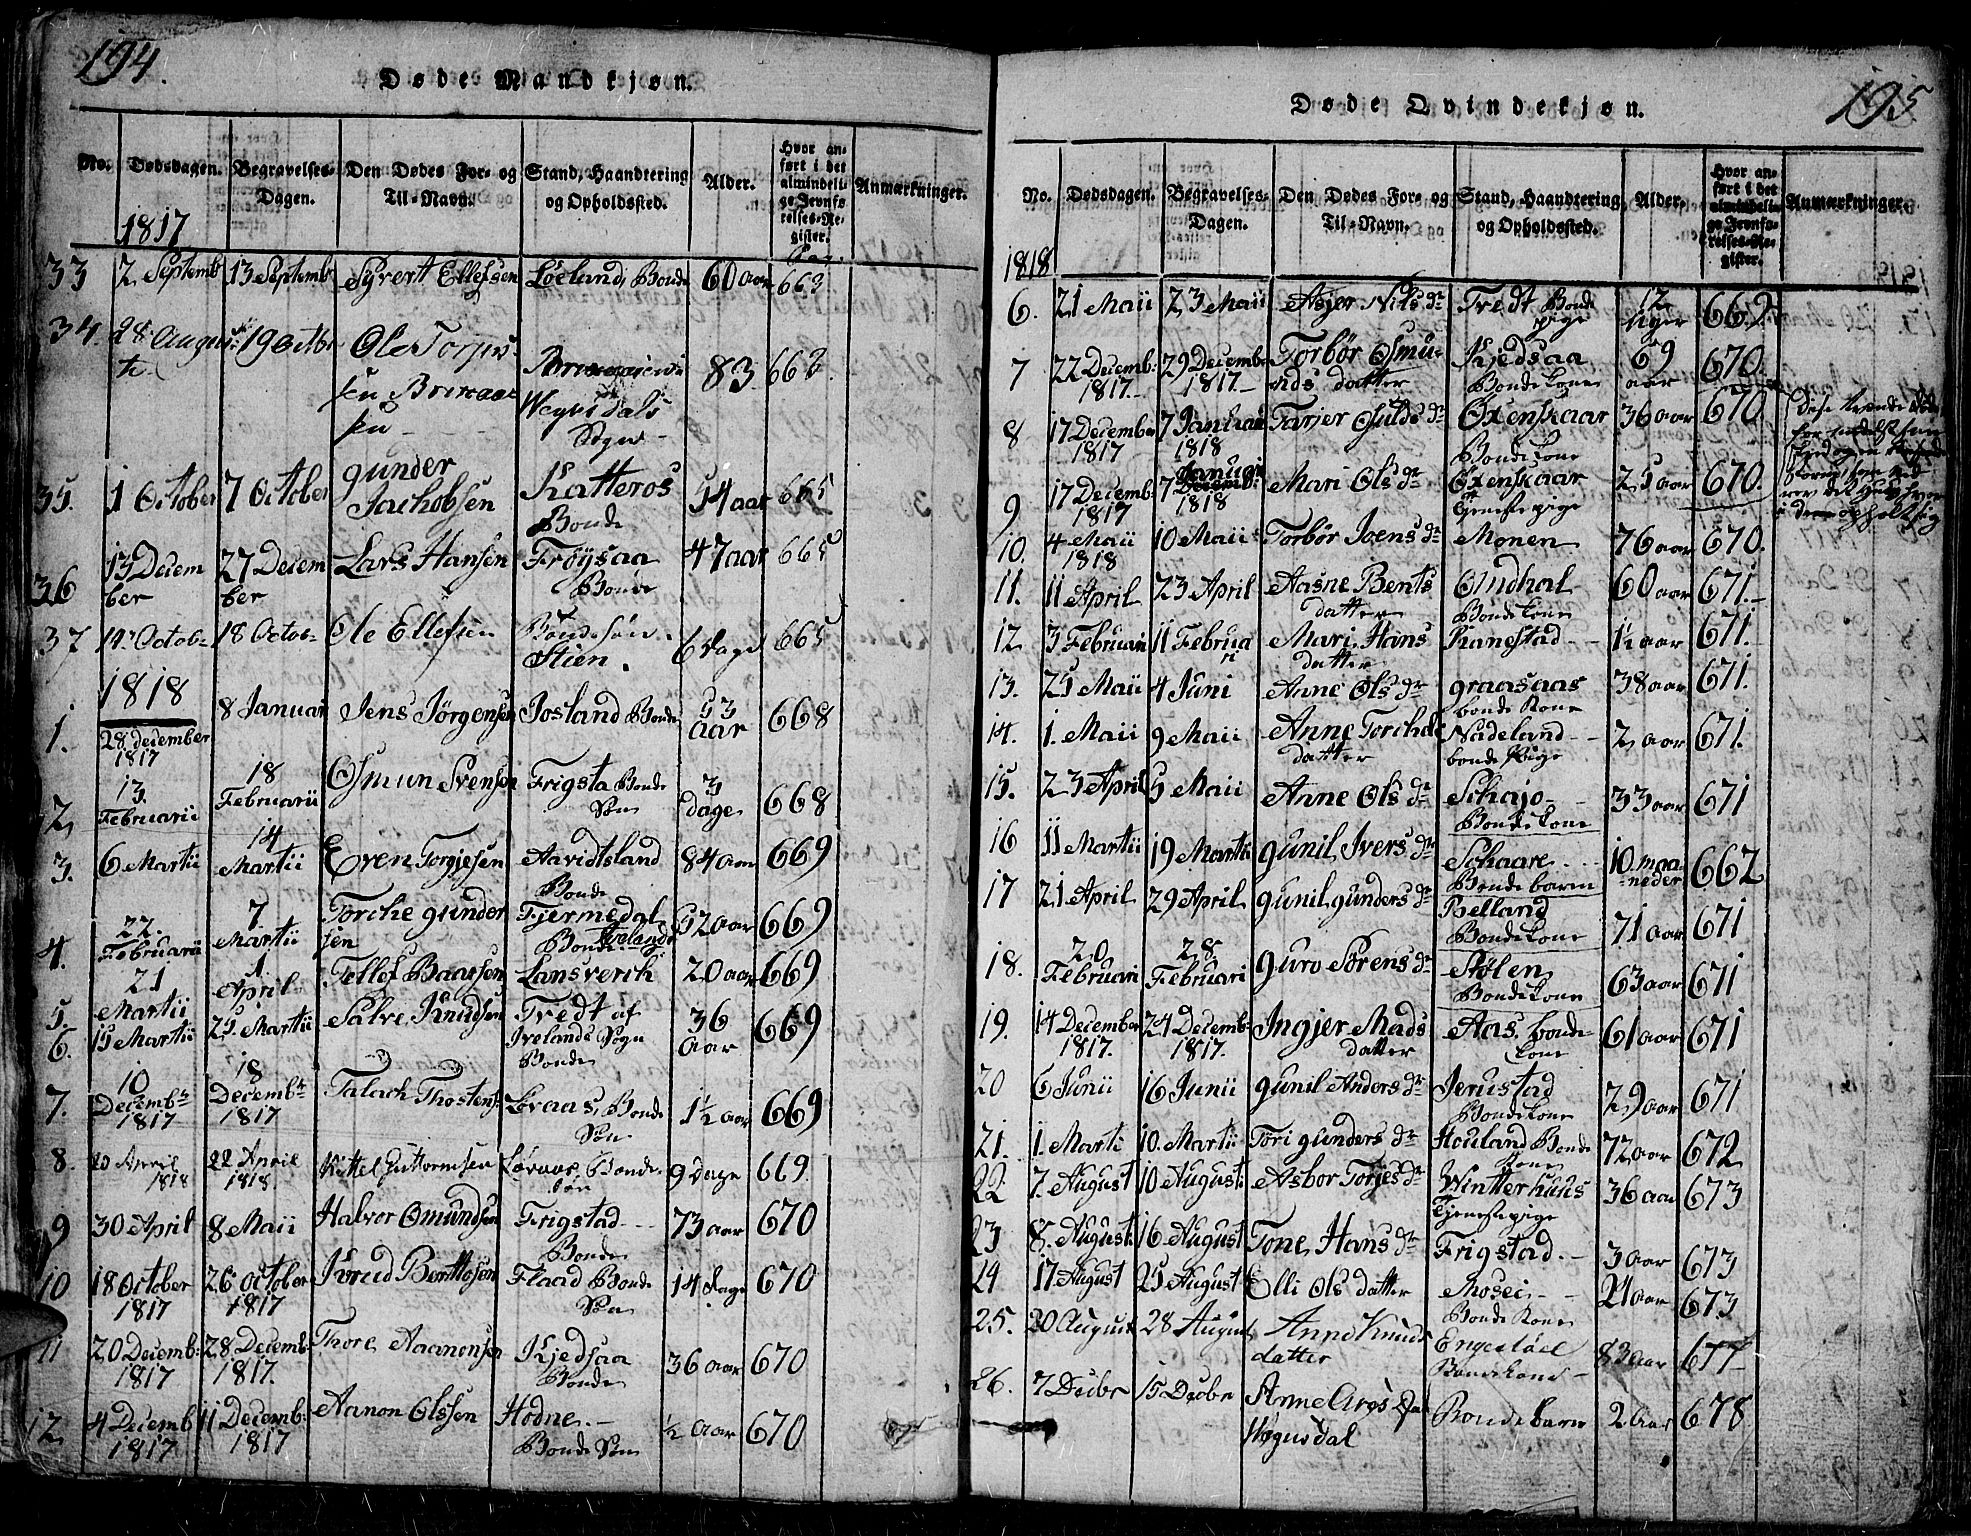 194.
Døde Mandkjøn.
No. Dødsdagen. Begravelses-Dagen. Den Dødes For- og Til-Navn. Stand, Haandtering og Opholdsted. Alder. Hvor anført i det almindelige Jevnførelses-Register. Anmærkninger.
1817
33 2 Septemb 13 Septemb Syvert Ellefsen Løeland, Bonde 60 aar 663
34 28 August 19 Octbr Ole Torjus- 83 663
Sogn
35. 1 October 7 October gunder Jachobsen Katteros Bonde 54 aar 665
36 13 December 27 December Lars Hansen Frøysaa Bonde 47 aar 665
37 14 Octob- 18 Octob- Ole Ellefsen Bondesøn. Stien. 6 dage 665
1818
1. 28 december 1817 8 Januar Jens Jørgensen Josland Bonde 53 aar 668
2 13. Februarii 18 Februarii Osmun Svensen Frigsta Bonde Søn 3 dage 668
3. 6 Martii 14 Martii Even Torgjesen Aavidtsland Bonde 84 aar 669
4. 22. Februarii 7. Martii Torche gundersen Fjermedal Bonde 52 aar 669
5. 21 Martii 1. April Tellef Baarsen Lansverch 20 aar 669
6. 15 Martii 25. Martii Salvi Knudsen Tvedt af Ivelands Sogn Bonde 36 aar 669
7. 10 Decembr 1817 18 Decembr 1817 Talach Thostens- Løvaas, Bonde Søn 1½ aar 669
8. 20 April 1818 22 April 1818. Kittel Guttormsen Løvaas Bonde søn 9 dage 669.
9 30 April 8 Maii Halvor Omundsen Frigstad Bonde 73 aar 670
10 18 October 1817 26 October 1817 Knud Benttosen Flaad Bonde Søn 14 dage 670
11 20 Decemb: 1817 28 Decemb 1817. Thore Aanonsen Kjedsaa Bonde 36 aar 670
12 4 Decemb 1817 11 Decemb: 1817 Aanon Olssen Hodne. Bonde Søn ½ aar 670
195
Døde Qvindekjøn.
No. Dødsdagen. Begravelses-Dagen. Den Dødes For- og Til-Navn. Stand, Haandtering og Opholdsted. Alder. Hvor anført i det almindelige Jevnførelses-Register. Anmærkninger.
1818
6. 21 Maii 23 Maii Asjer Nils dr Tvedt Bonde pige 12 uger 669.
7 22 Decemb: 1817. 29 Decemb 1817. Torbør Osmunds datter Kjedsaa Bondekone 69 aar 670.
8 17 December 1817 7 Januar 1818 Tarjer Osulds dr Oxenskaar Bondekone 36 aar 670.
9 17 Decemb: 1817 7 Januari 1818 Mari Ols dr Oxenskaar Tjenestepige 25 aar 670.
10. 4 Maii 1818 10 Maii Torbør Joens dr Monen 76 aar 670.
11. 11 April 23 April Aasne Bents datter Omdhal Bondekone 60 aar 671.
12 3 Februari 11 Februari Mari Hans datter Ranestad 1½ aar 671.
13. 25 Maii 4 Juni Anne Ols dr graasaas bonde Kone 38 aar 671.
14. 1. Maii 9 Maii Anne Torchels datter Nadeland bonde Pige 2 aar 671.
15. 23 April 5 Maii Anne Ols dr Schajo Bondekone 33 aar 671
16 11 Martii 19 Martii gunil Ivers dr Schaare Bondebarn 10. maaneder 662
17 21 April 29 April gunil gunders dr Belland Bondekone 71 aar 671
18. 20 Februari 28 Februari guro Sørens dr Stølen Bondekone 63 aar 671
19. 14 December 1817. 24 Decemb: 1817. Ingjer Mads datter Aas. bonde- kone 61 aar 671
20 6 Junii 16 Junii gunil Anders dr Jerustad Bondekone 29 aar 671
21. 1. Marti 10. Martii Tori gunders dr Houland Bonde Kone 72 aar 672
22 7. August 10 August: Asbor Torjes dr Wintterhuus Tjenestepige 36 aar 673
23 8. August: 16. August Tone Hans dr Frigstad. 3 aar 673
24 17. August 25 August Elli Ols datter Mosei Bonde Kone 24 aar 673
25. 20 August 28 August Anne Knuds datter Engesløel Bondekone 83 aar 677
26. 7 Decbr 15 Decbr Anne Ares Wegusdal Bondebarn 2 Aar 678